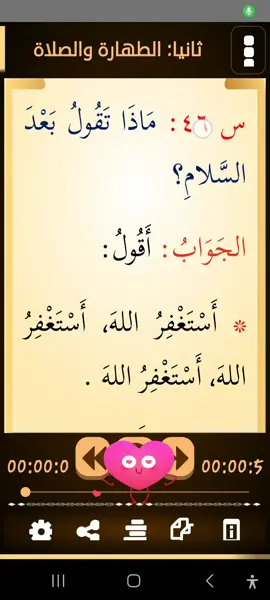 ثانيا: الطهارة والصلاة
س ٤٦: مَاذَا تَقُولُ بَعْدَ
السَّلامِ؟
الجَوَابُ: أَقُولُ:
* أَسْتَغْفِرُ اللهَ، أَسْتَغْفِرُ
اللهَ، أَسْتَغْفِرُ اللهَ .
00:00:0
00:00:5